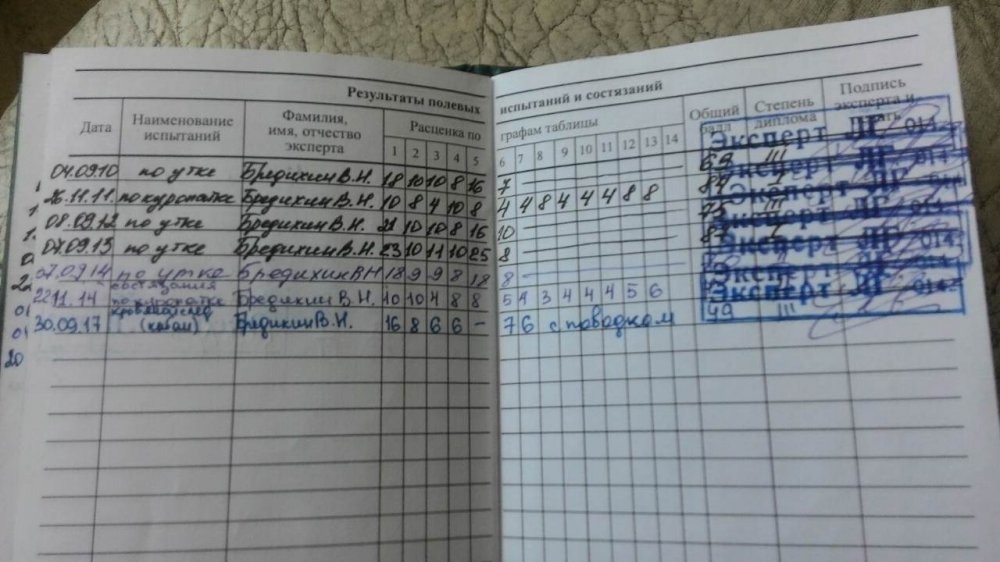 Результаты полевых испытаний и состязаний
Дата Наименование испытаний Фамилия, имя, отчество эксперта Расценка по графам таблицы Общий балл Степень диплома Подпись эксперта и
1 2 3 4 5 6 7 8 9 10 11 12 13 14
04.09.10 по утке Бредихин В.Н. 18 10 10 8 16 7 69 III
26.11.11 по куропатке Бредихин В.Н. 10 8 4 10 8 4 4 8 4 4 4 8 8 84
08.09.12 по утке Бредихин В.Н. 21 10 10 8 16 10 75
07.09.13 по утке Бредихин В.Н. 23 10 11 10 25 8
07.09.14 по утке Бредихин В.Н 18 9 9 8 18 8
22.11.14 состязания по куропатке Бредихин В.Н. 10 10 4 8 8 5 4 3 4 4 4 5 6
30.09.17 кровяной след (кабан) Бредихин В.Н. 16 8 6 6 – 7 6 с поводком 49 III
Эксперт ЛГ 014
Эксперт ЛГ 014
Эксперт ЛГ
Эксперт ЛГ 014
Эксперт ЛГ 014
Эксперт ЛГ 014
20